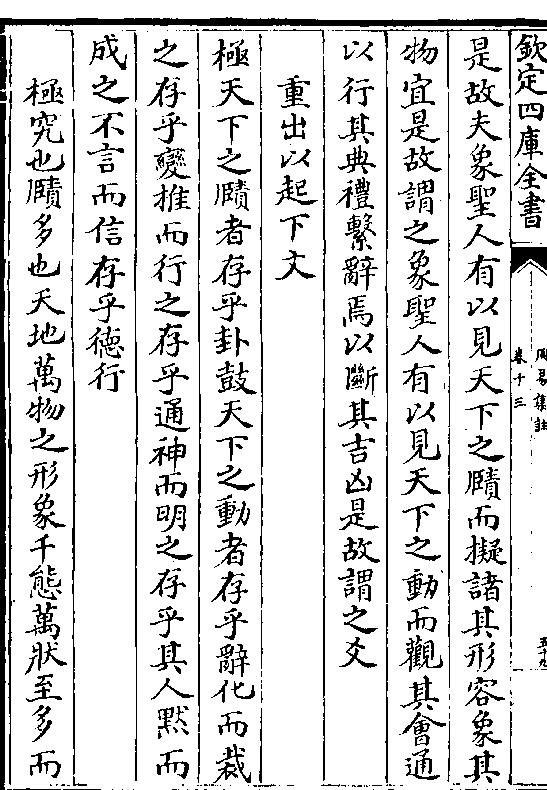 欽定四庫全書
周易集註
卷十三
五十九
是故夫象聖人有以見天下之賾而擬諸其形容象其
物宜是故謂之象聖人有以見天下之動而觀其會通
以行其典禮繫辭焉以斷其吉凶是故謂之爻
重出以起下文
極天下之賾者存乎卦鼓天下之動者存乎辭化而裁
之存乎變推而行之存乎通神而明之存乎其人默而
成之不言而信存乎德行
極究也賾多也天地萬物之形象千態萬狀至多而